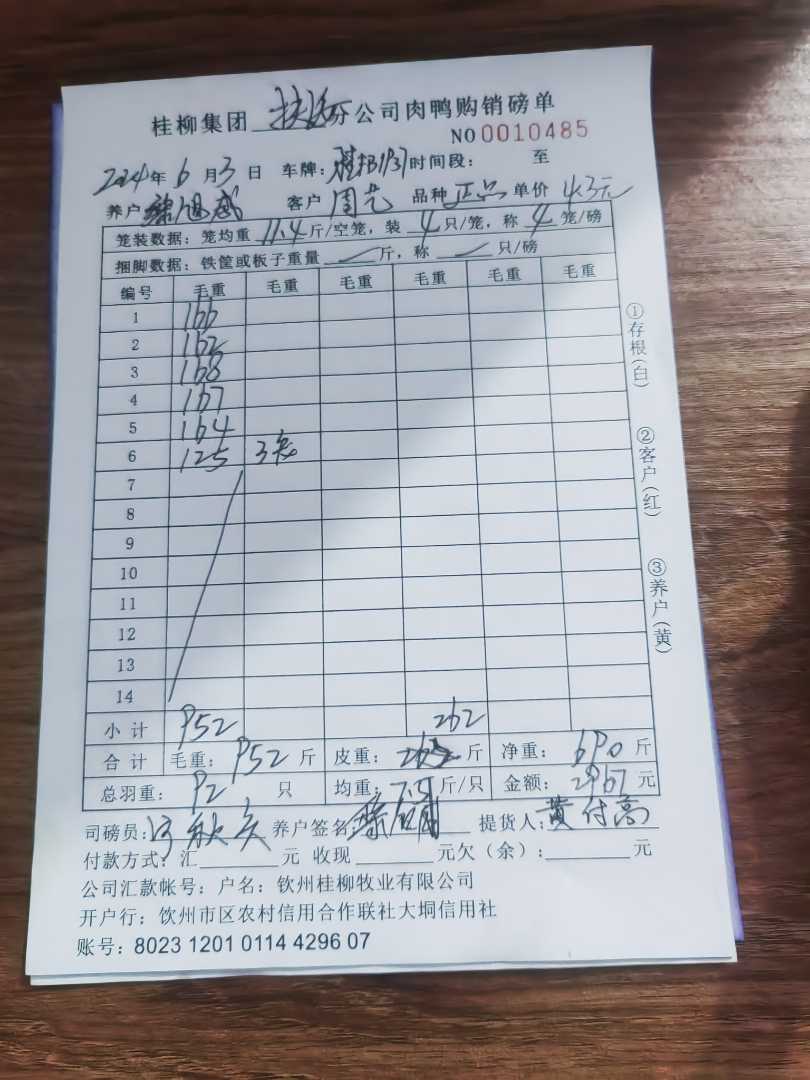 桂柳集团 扶绥 分公司肉鸭购销磅单
NO 0010485
2024年 6 月 3 日 车牌: 时间段: 至
养户 客户 周艺 品种 正品 单价 4.3元
笼装数据: 笼均重 11.4 斤/空笼, 装 4 只/笼, 称 4 笼/磅
捆脚数据: 铁筐或板子重量 斤, 称 只/磅
编号 毛重 毛重 毛重 毛重 毛重 毛重
1 166
2 162
3 168
4 167
5 164
6 125 3笼
7
8
9
10
11
12
13
14
小 计 952 262
合 计 毛重: 952 斤 皮重: 斤 净重: 690 斤
总羽重: 92 只 均重: 7.5 斤/只 金额: 2967 元
司磅员: 养户签名 提货人: 黄付高
付款方式: 汇 元 收现 元欠(余): 元
公司汇款帐号: 户名: 钦州桂柳牧业有限公司
开户行: 饮州市区农村信用合作联社大垌信用社
账号: 8023 1201 0114 4296 07
①存根(白)
②客户(红)
③养户(黄)